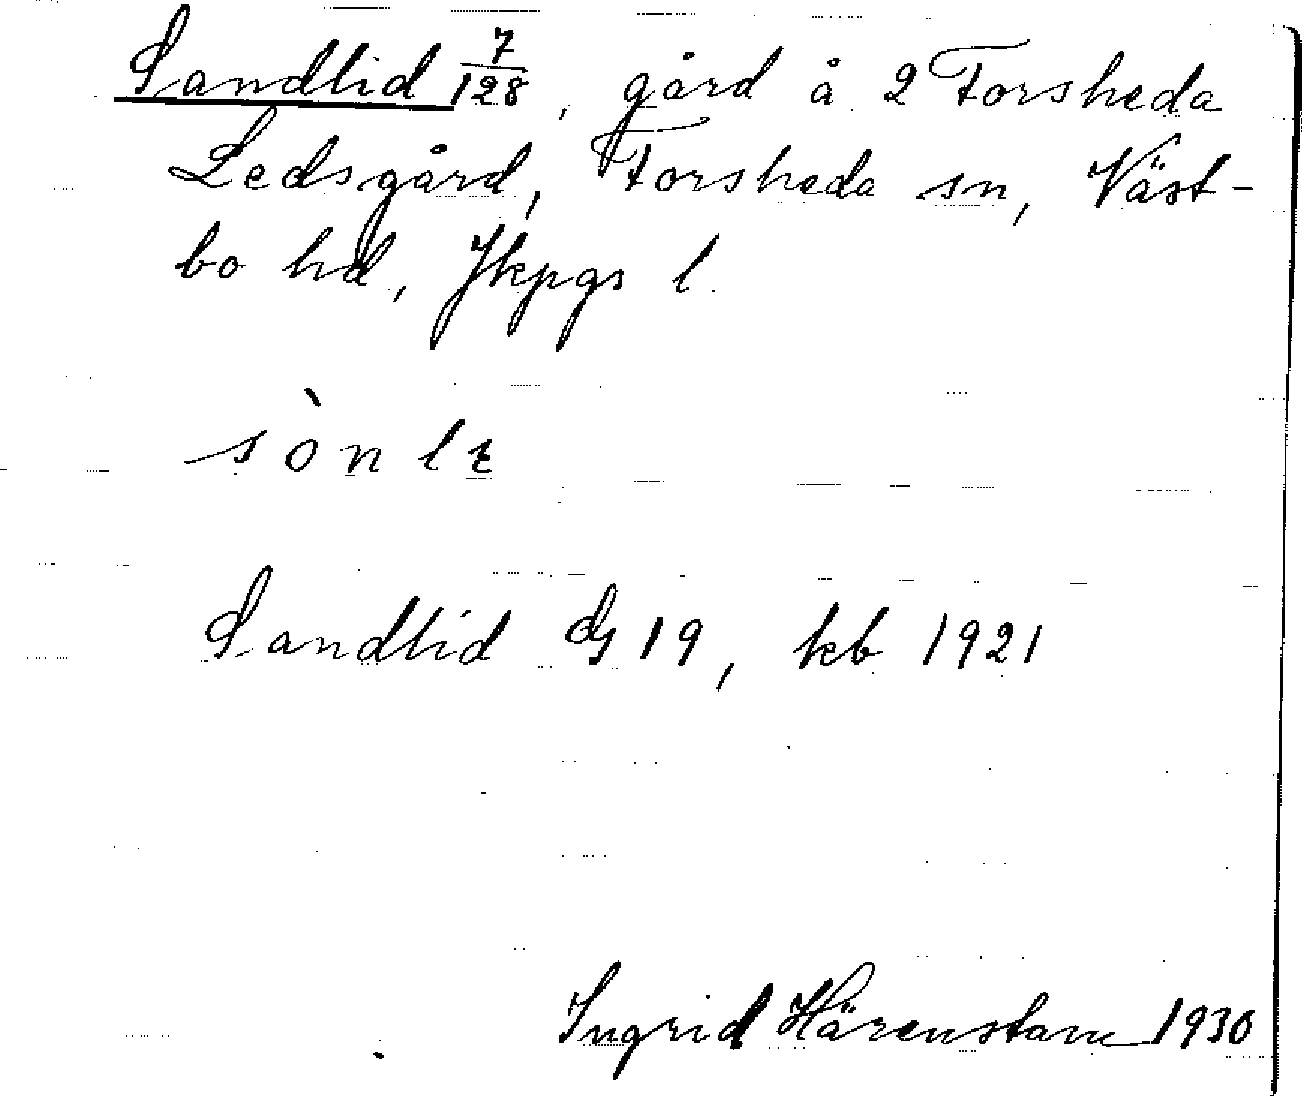 Sandlid 7/128, gård å 2 Forsheda
Ledsgård, Forsheda sn, Väst-
bo hd, Jkpgs l.
sònlɛ
Sandlid Gs 19, kb 1921
Ingrid Härenstam 1930